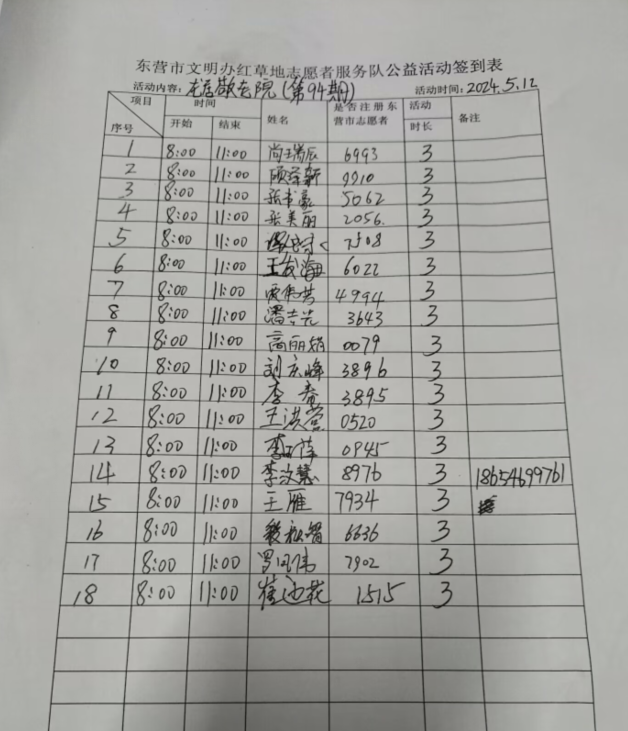 东营市文明办红草地志愿者服务队公益活动签到表
活动内容: 敬老院(第94期) 活动时间: 2024.5.12
项目 序号 时间 开始 结束 姓名 是否注册东营市志愿者 活动时长 备注
1 8:00 11:00 尚瑞辰 6993 3
2 8:00 11:00 顾泽新 9910 3
3 8:00 11:00 张书豪 5062 3
4 8:00 11:00 张美丽 2056. 3
5 8:00 11:00 7508 3
6 8:00 11:00 王成海 6022 3
7 8:00 11:00 4994 3
8 8:00 11:00 潘吉光 3643 3
9 8:00 11:00 高丽娟 0079 3
10 8:00 11:00 刘庆峰 3896 3
11 8:00 11:00 李春 3895 3
12 8:00 11:00 王洪营 0520 3
13 8:00 11:00 李萍 0945 3
14 8:00 11:00 李汶慧 8976 3 18654699761
15 8:00 11:00 王雁 7934 3
16 8:00 11:00 6636 3
17 8:00 11:00 罗凤伟 7902 3
18 8:00 11:00 崔迎花 1515 3